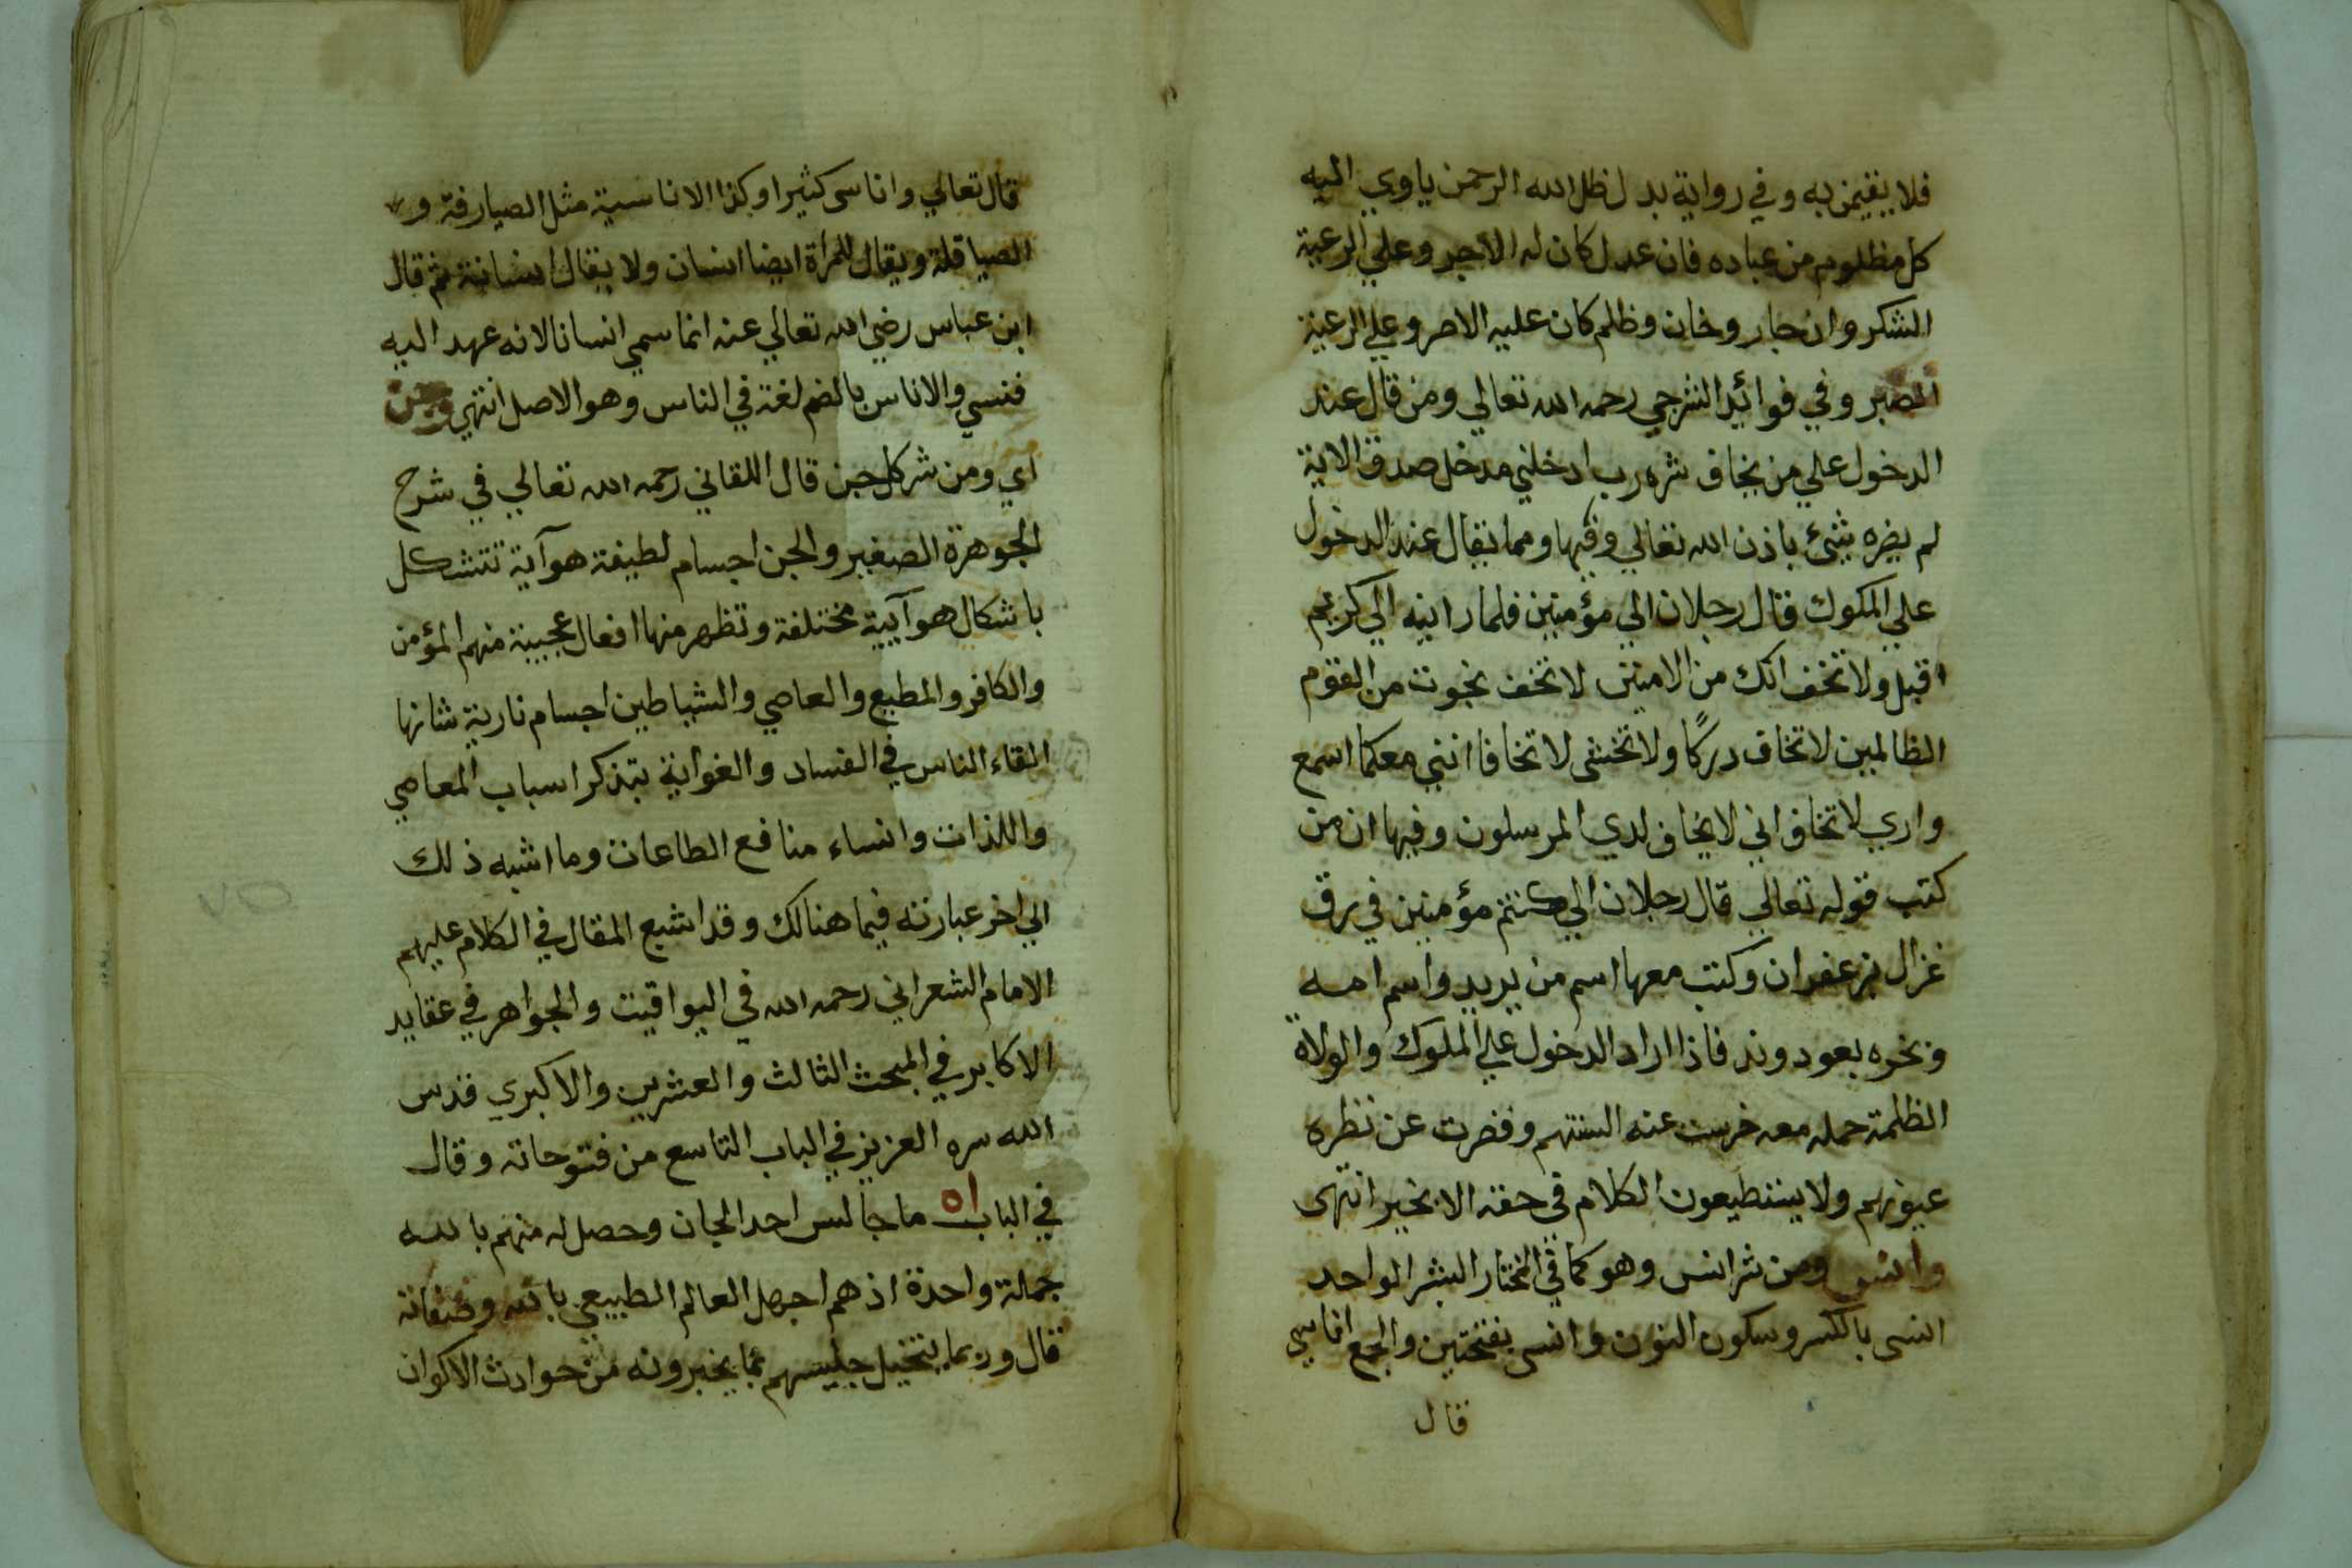 فلا يقيمن به وفي رواية بدل ظل الله الرحمن ياوي اليه
كل مظلوم من عباده فان عدل كان له الاجر وعلي الرعية
الشكر وان جار وخان وظلم كان عليه الاصر وعلي الرعية
الصبر وفي فوائد الشرجي رحمه الله تعالي ومن قال عند
الدخول علي من يخاف شره رب ادخلني مدخل صدق الاية
لم يضره شئ باذن الله تعالي وفيها ومما يقال عند الدخول
علي الملوك قال رجلان الي مؤمنين فلما راينه الي كريم
اقبل ولا تخف انك من الامنين لا تخف نجوت من القوم
الظالمين لا تخاف دركًا ولا تخشى لا تخافا انني معكما اسمع
واري لا تخاف اني لا يخاف لدي المرسلون وفيها ان من
كتب قوله تعالي قال رجلان الي كنتم مؤمنين في رق
غزال بزعفران وكتب معها اسم من يريد واسم امه
وبخره بعود وند فاذا اراد الدخول علي الملوك والولاة
الظلمة حمله معه خرست عنه السنتهم وقصرت عن نظره
عيونهم ولا يستطيعون الكلام في حقه الا بخير انتهى
وانس ومن شر انس وهو كما في المختار البشر الواحد
انسى بالكسر وسكون النون وانسى بفتحتين والجمع اناسي
قال
قال تعالي واناسى كثيرا وكذا الاناسية مثل الصيارفة و
الصياقلة ويقال للمرأة ايضا انسان ولا يقال انسانة ثم قال
ابن عباس رضي الله تعالي عنه انما سمي انسانا لانه عهد اليه
فنسي والاناس بالضم لغة في الناس وهو الاصل انتهي وجن
اي ومن شر كل جن قال اللقاني رحمه الله تعالي في شرح
الجوهرة الصغير والجن اجسام لطيفة هوآية تتشكل
باشكال هوآيية مختلفة وتظهر منها افعال عجيبة منهم المؤمن
والكافر والمطيع والعاصي والشياطين اجسام نارية شانها
القاء الناس في الفساد والغواية بتذكر اسباب المعاصي
واللذات وانساء منافع الطاعات وما اشبه ذلك
الي اخر عبارته فيما هنالك وقد اشبع المقال في الكلام عليهم
الامام الشعراني رحمه الله في اليواقيت والجواهر في عقايد
الاكابر في المبحث الثالث والعشرين والاكبري قدس
الله سره العزيز في الباب التاسع من فتوحاته وقال
في الباب ٥١ ما جالس احد الجان وحصل له منهم بالله
جملة واحدة اذ هم اجهل العالم الطبيعي بالله وصفاته
قال وربما يتخيل جليسهم بما يخبرونه من حوادث الاكوان
٧٥